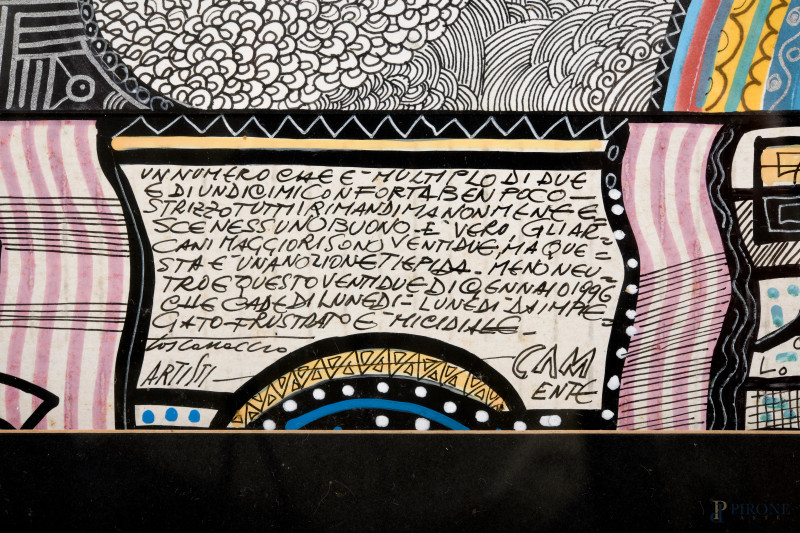 UN NUMERO CHE E - MULTIPLO DI DUE
E DI UNDICI MI CONFORTA BEN POCO -
STRIZZO TUTTI I RIMANDI MA NON ME NE E=
SCE NESSUNO BUONO - E VERO, GLI AR=
CANI MAGGIORI SONO VENTIDUE, MA QUE=
STA E UNA NOZIONE TIEPIDA - MENO NEU=
TRO E QUESTO VENTIDUE DI GENNAIO 1996
CHE CADE DI LUNEDI = LUNEDI DA IMPIE=
GATO - FRUSTRATO E - MICIDIALE -
ARTISTI - CAM
ENTE
LO
PIRONE